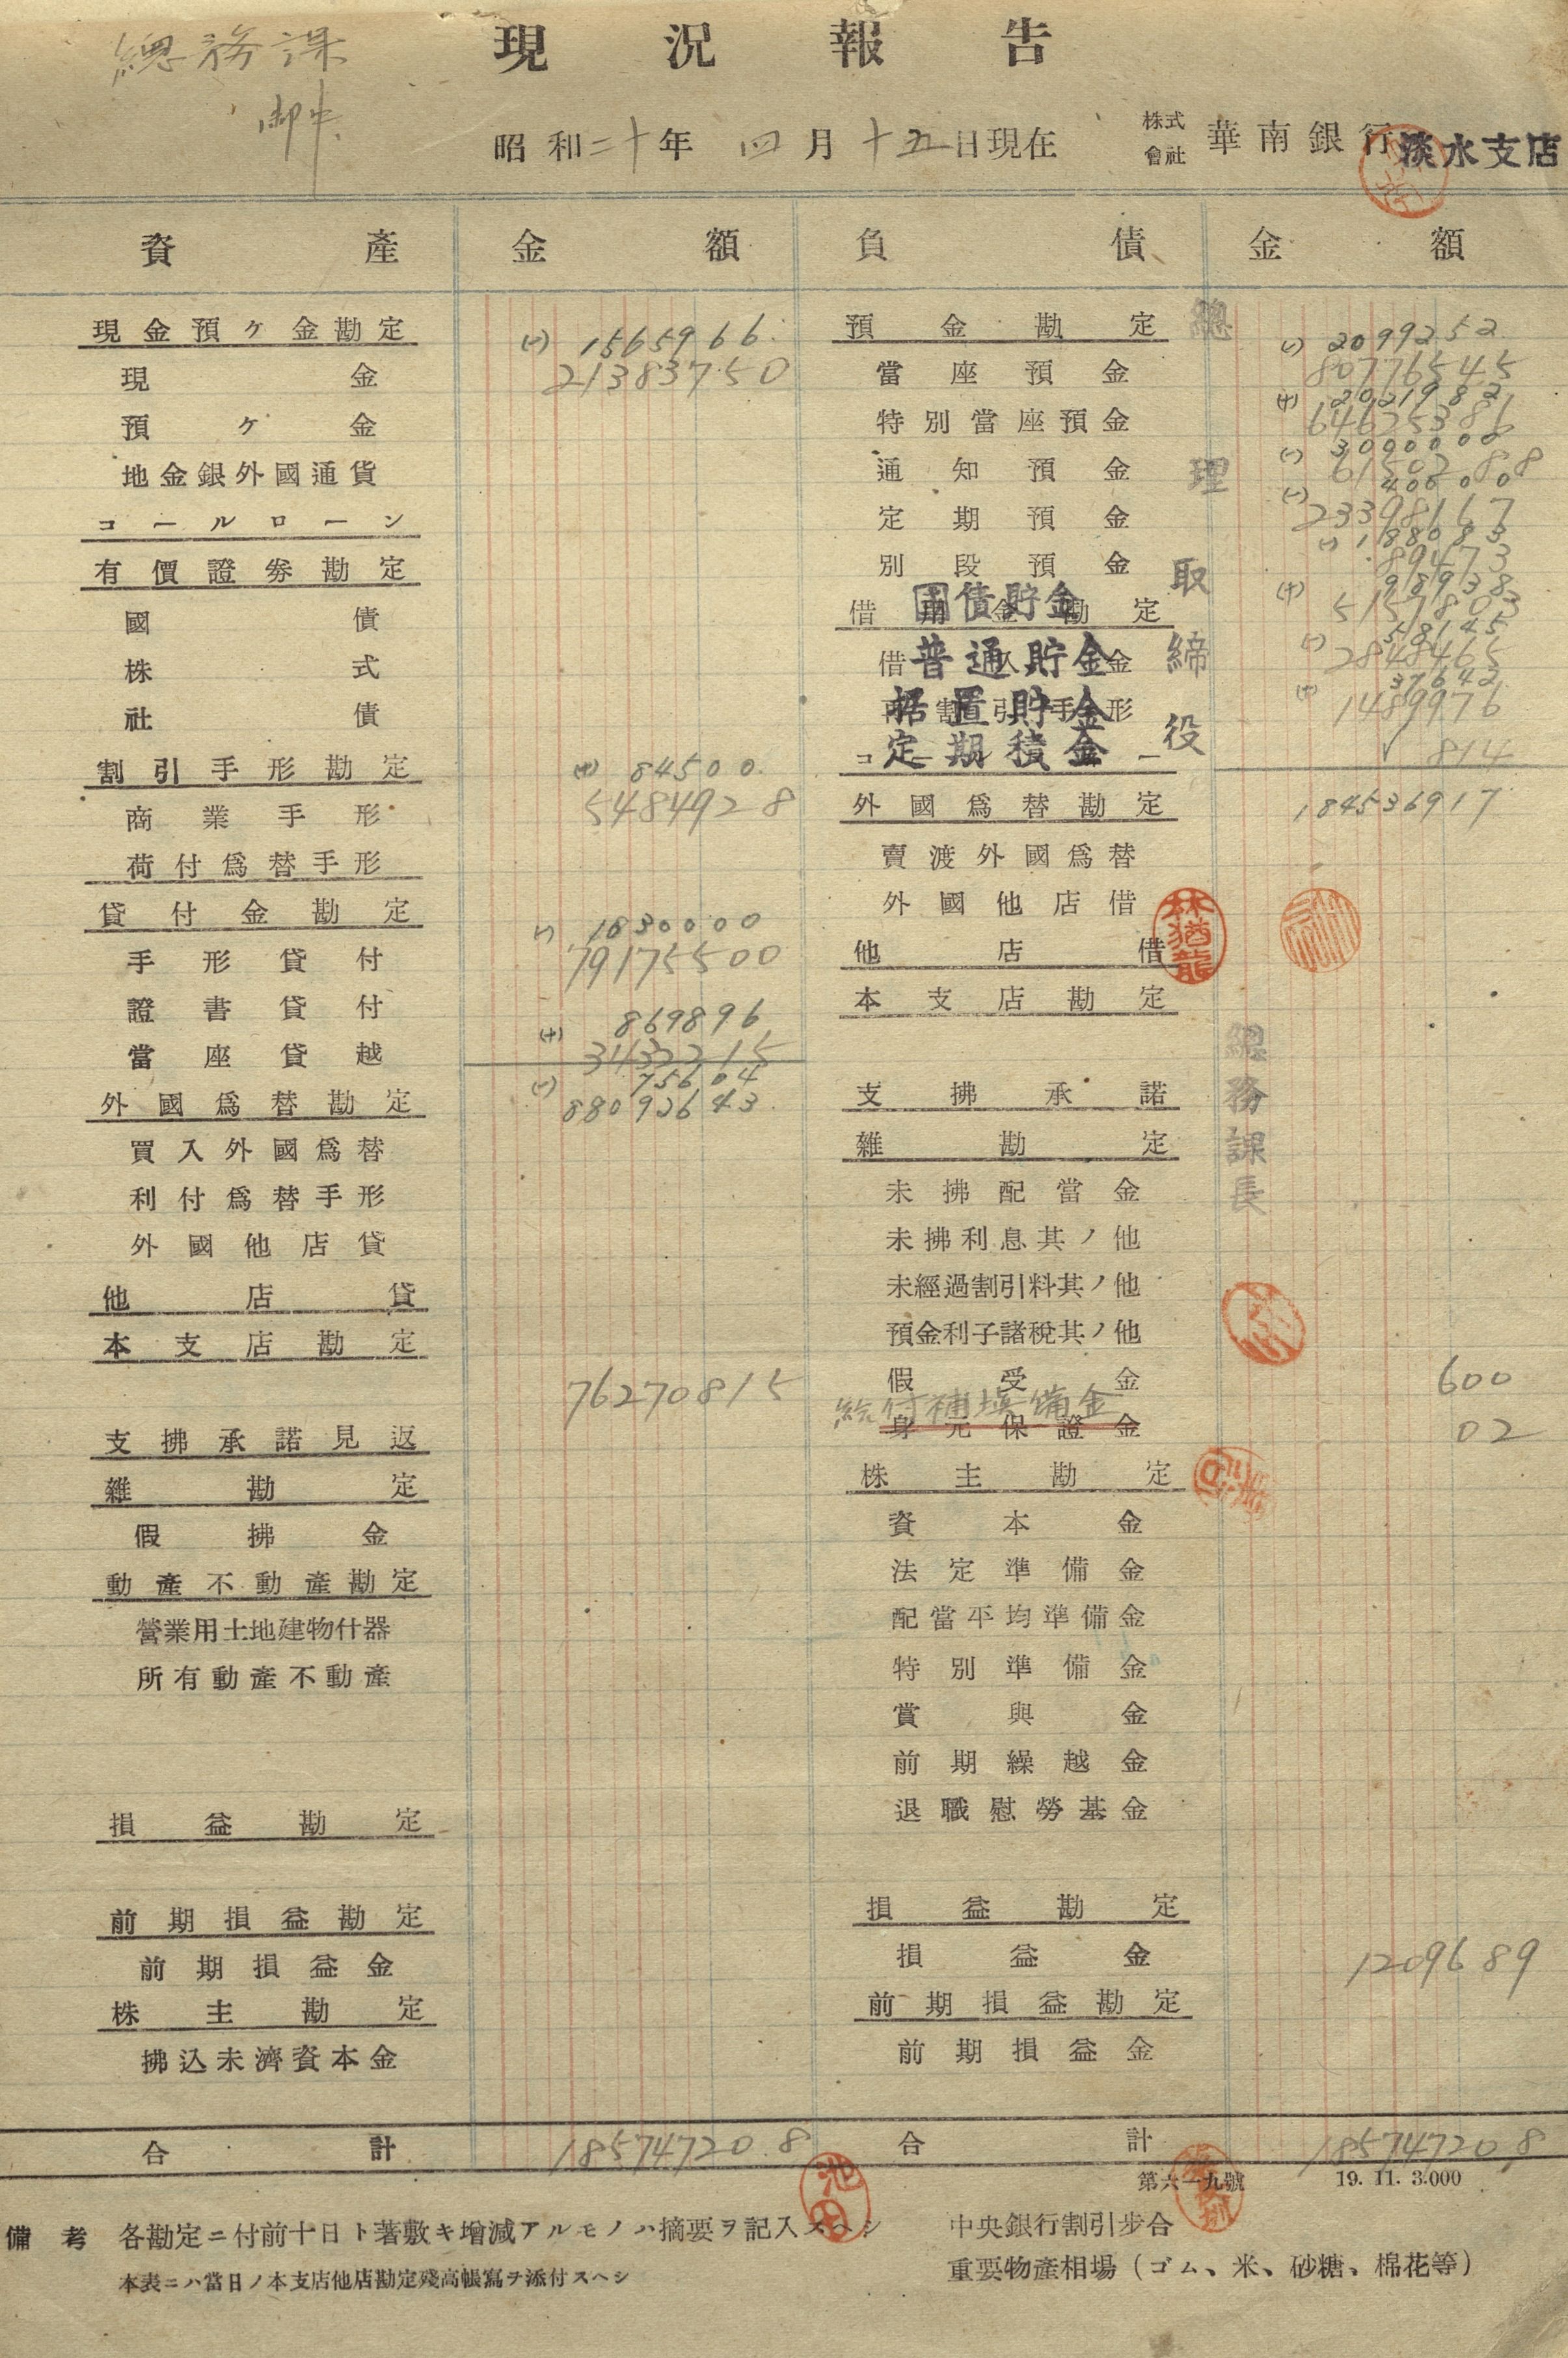 總務課
御中
現況報告
昭和二十年 四月十五日現在
株式會社 華南銀行 淡水支店
資產 金額 負債 金額
現金預ケ金勘定
(一) 1565966
現金 21383750
預ケ金
地金銀外國通貨
コールローン
有價證劵勘定
國債
株式
社債
割引手形勘定
(十) 84500
商業手形 5484928
荷付爲替手形
貸付金勘定
(一) 1830000
手形貸付 79175500
證書貸付
(十) 869896
當座貸越 3132215
(一) 75604
外國爲替勘定
買入外國爲替
利付爲替手形
外國他店貸
他店貸
本支店勘定
76270815
支拂承諾見返
雜勘定
假拂金
動產不動產勘定
營業用土地建物什器
所有動產不動產
損益勘定
前期損益勘定
前期損益金
株主勘定
拂込未濟資本金
合計 185747208
預金勘定
(一) 2099252
當座預金 80776545
(十) 2021982
特別當座預金 64625386
(一) 3000000
通知預金
(一) 40000
定期預金 23398167
(一) 188083
別段預金 89473
(十) 918938
借用金勘定
國債貯金 5157803
(一) 58145
普通貯金 2848465
(十) 37642
据置貯金 1489976
定期積金 814
外國爲替勘定 184536917
賣渡外國爲替
外國他店借
他店借
本支店勘定
支拂承諾
雜勘定
未拂配當金
未拂利息其ノ他
未經過割引料其ノ他
預金利子諸稅其ノ他
假受金 600
給付補塡備金
身元保證金 02
株主勘定
資本金
法定準備金
配當平均準備金
特別準備金
賞與金
前期繰越金
退職慰勞基金
損益勘定
損益金 1209689
前期損益勘定
前期損益金
合計 185747208
總理
取締役
林猶龍
總務課長
池田
第六一九號 19. 11. 3.000
備考 各勘定ニ付前十日ト著敷キ增減アルモノハ摘要ヲ記入スヘシ
本表ニハ當日ノ本支店他店勘定殘高帳寫ヲ添付スヘシ
中央銀行割引步合
重要物產相場(ゴム、米、砂糖、棉花等)